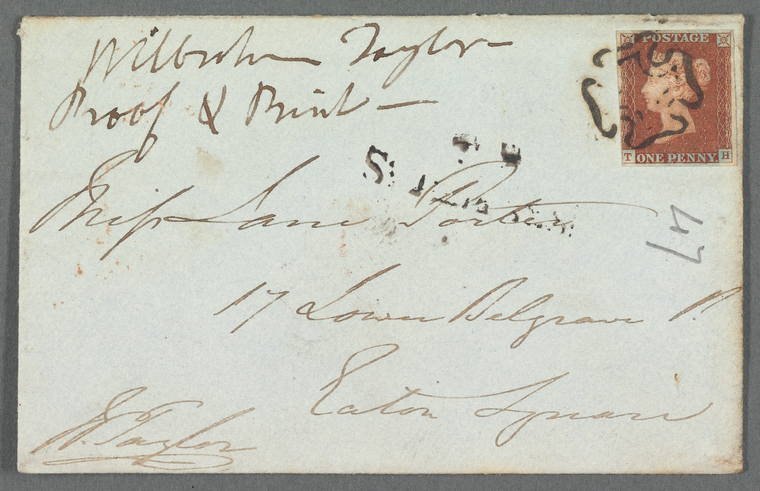 Wilbraham Taylor
Proof & Print
POSTAGE
T H
ONE PENNY.
Miss Jane Porter
47
17 Lower Belgrave P.
Eaton Square
W. Taylor